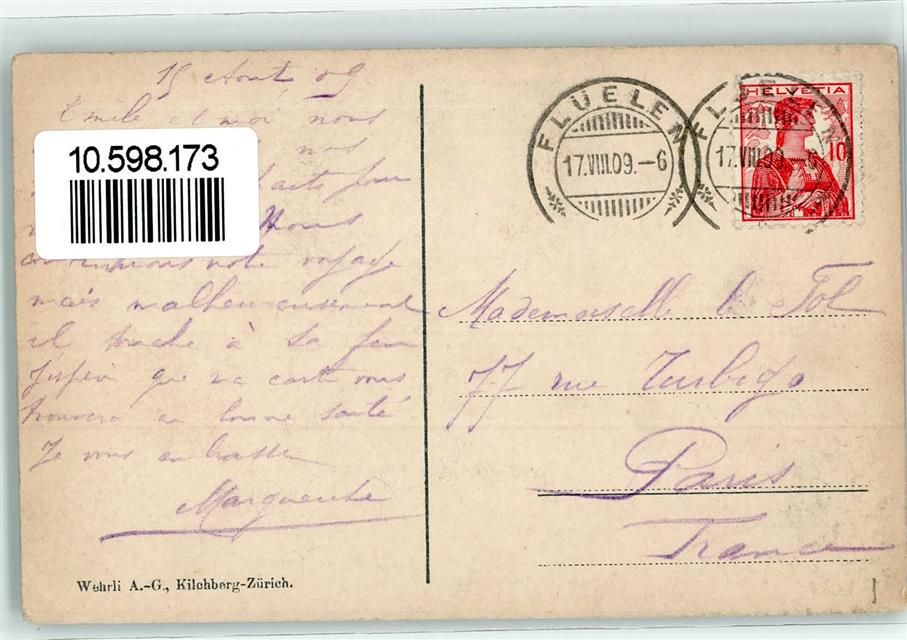 15 Aout 09
Emile et moi nous
nos
10.598.173
faits pour
Nous
continuons notre voyage
mais malheureusement
il touche à sa fin
J'espère que ma carte vous
trouvera en bonne santé
Je vous embrasse
Marguerite
Wehrli A.-G., Kilchberg-Zürich.
FLÜELEN
17.VIII.09.–6
FLÜELEN
17.VIII.09.–6
HELVETIA
10
Mademoiselle le Fol
77 rue Turbigo
Paris
France